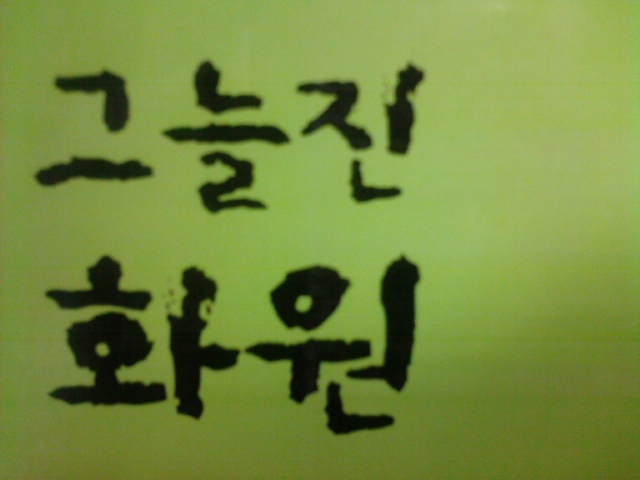 그늘진
화원